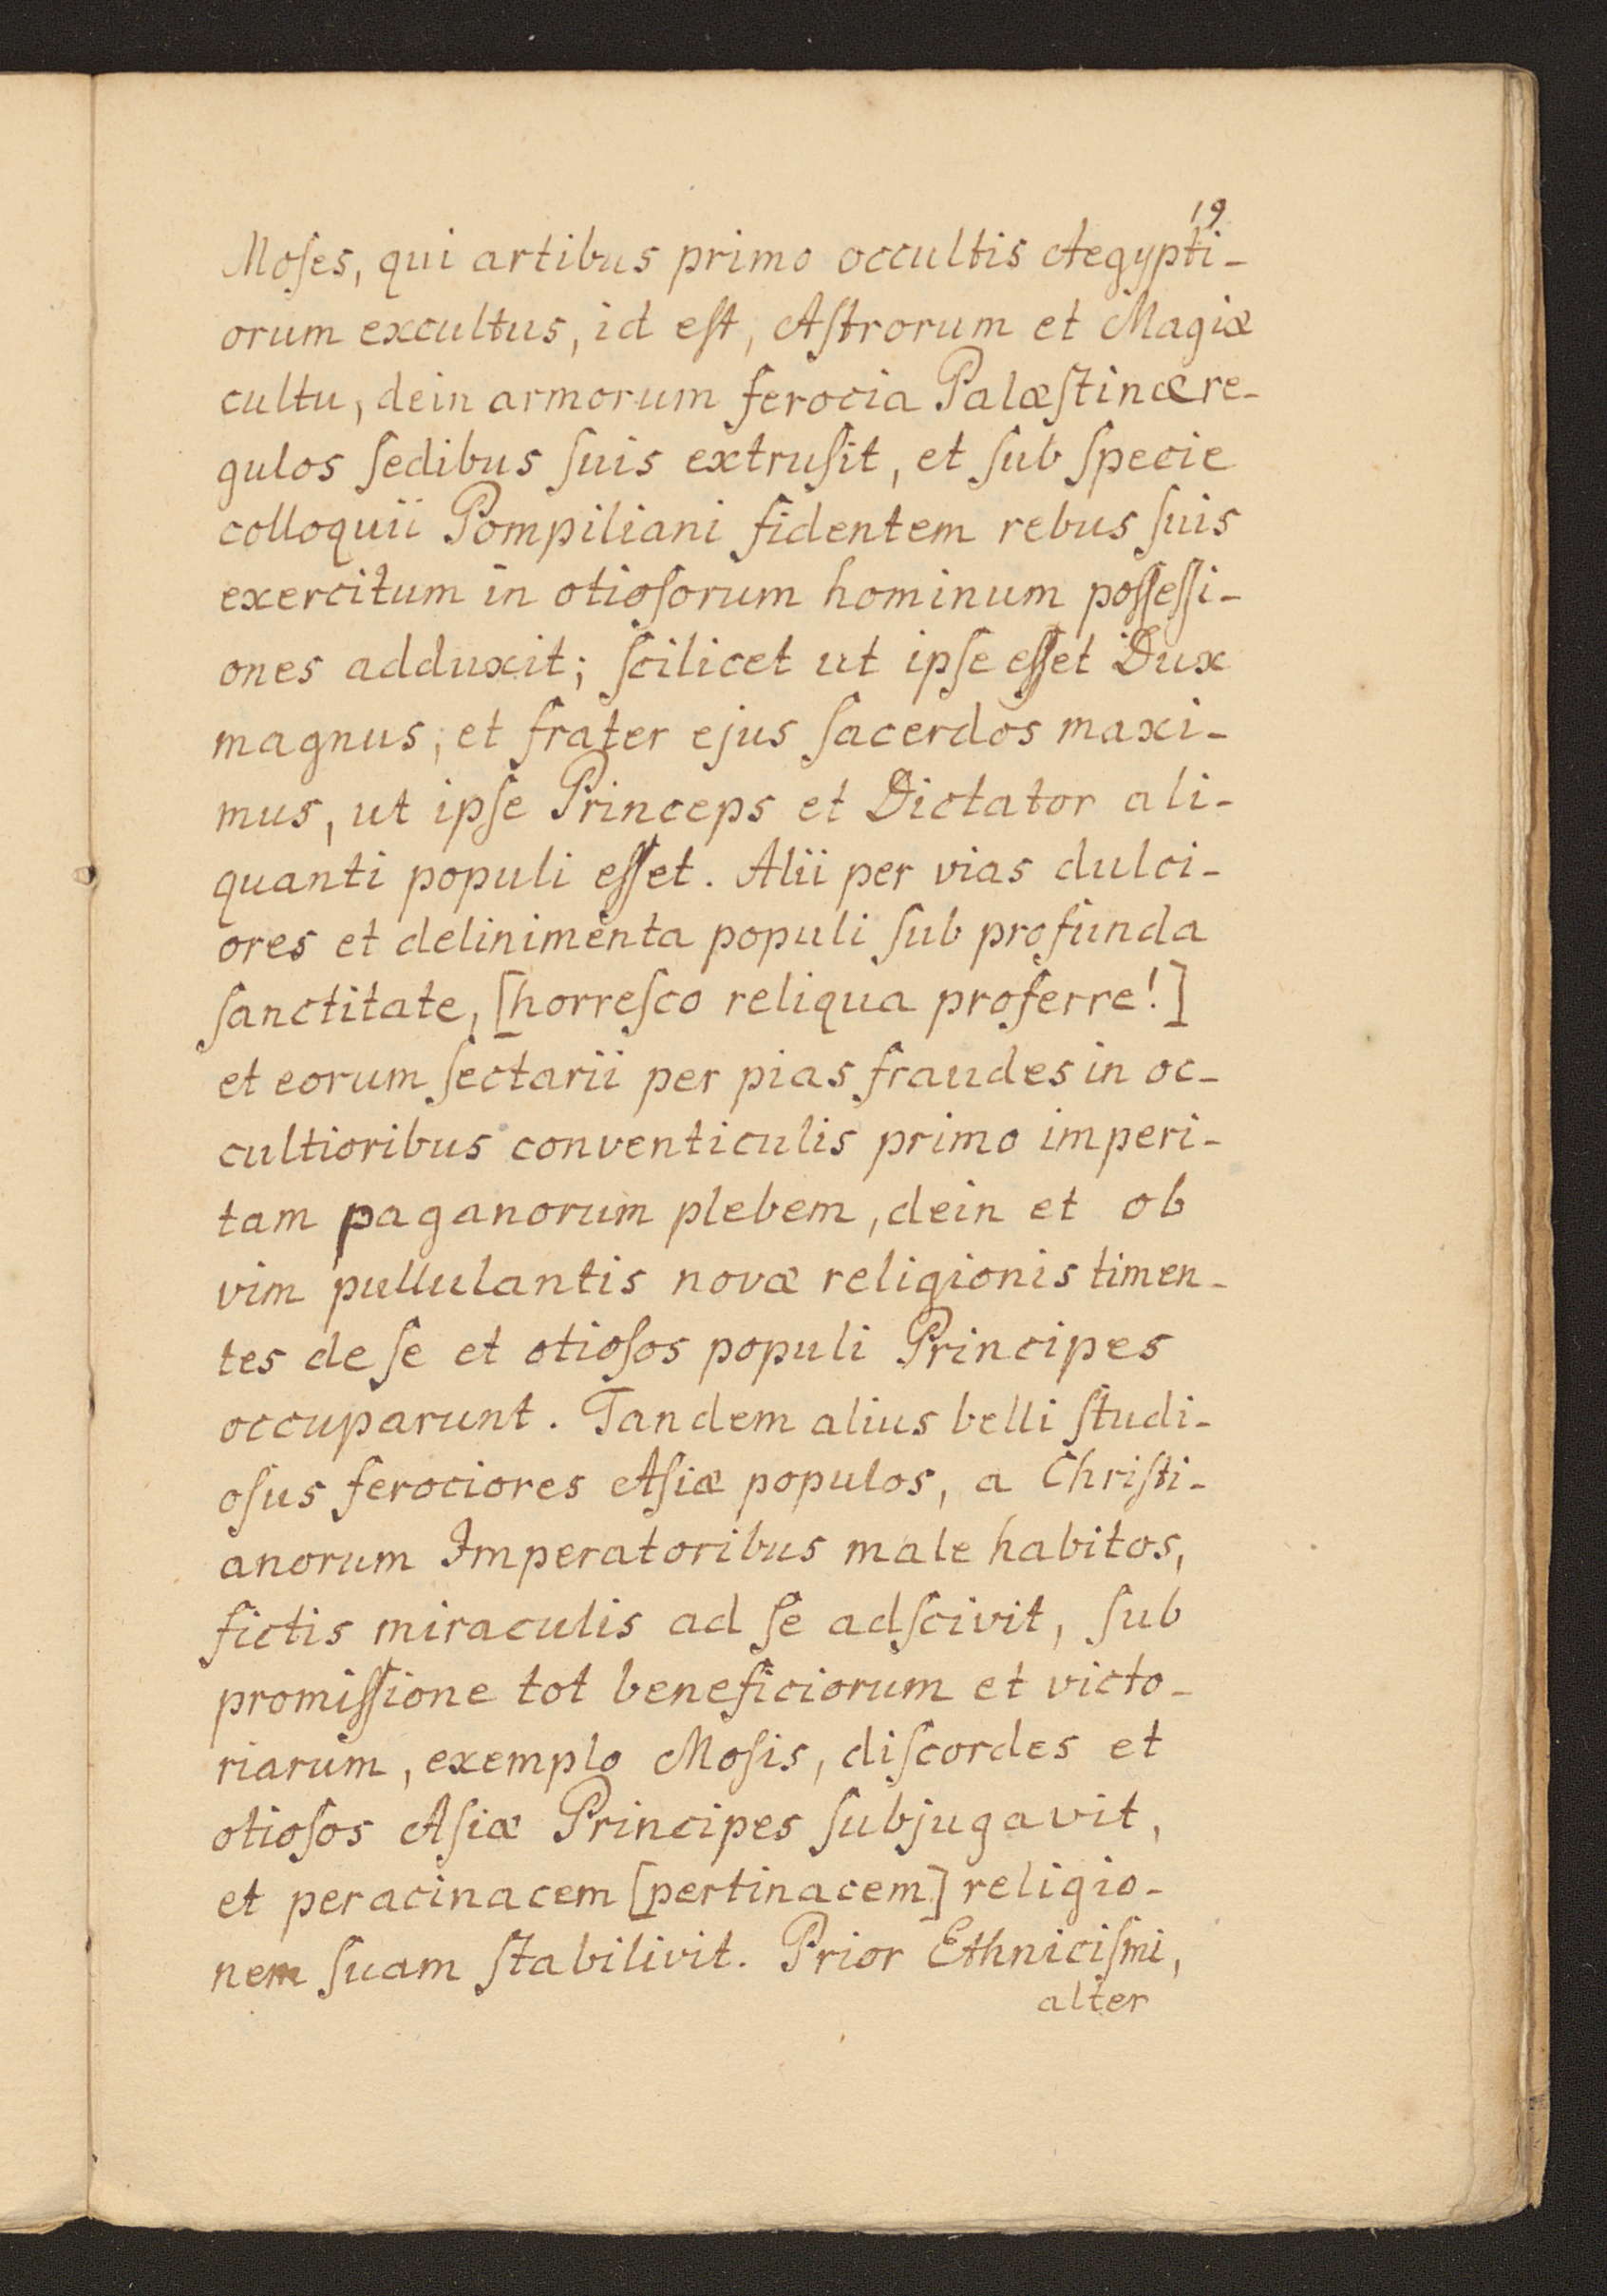 19
Moſes, qui artibus primo occultis Aegypti-
orum excultus, id eſt, Aſtrorum et Magiæ
cultu, dein armorum ferocia Palæſtinæ re-
gulos ſedibus ſuis extruſit, et ſub ſpecie
colloquii Pompiliani fidentem rebus ſuis
exercitum in otioſorum hominum poſſeſſi-
ones adduxit; ſcilicet ut ipſe eſſet Dux
magnus, et frater ejus ſacerdos maxi-
mus, ut ipſe Princeps et Dictator ali-
quanti populi eſſet. Alii per vias dulci-
ores et delinimenta populi ſub profunda
ſanctitate, [horreſco reliqua proferre!]
et eorum ſectarii per pias fraudes in oc-
cultioribus conventiculis primo imperi-
tam paganorum plebem, dein et ob
vim pullulantis novæ religionis timen-
tes de ſe et otioſos populi Principes
occuparunt. Tandem alius belli ſtudi-
oſus ferociores Aſiæ populos, a Chriſti-
anorum Imperatoribus male habitos,
fictis miraculis ad ſe adſcivit, ſub
promiſſione tot beneficiorum et victo-
riarum, exemplo Moſis, diſcordes et
otioſos Aſiæ Principes ſubjugavit,
et peracinacem [pertinacem] religio-
nem ſuam ſtabilivit. Prior Ethniciſmi,
alter